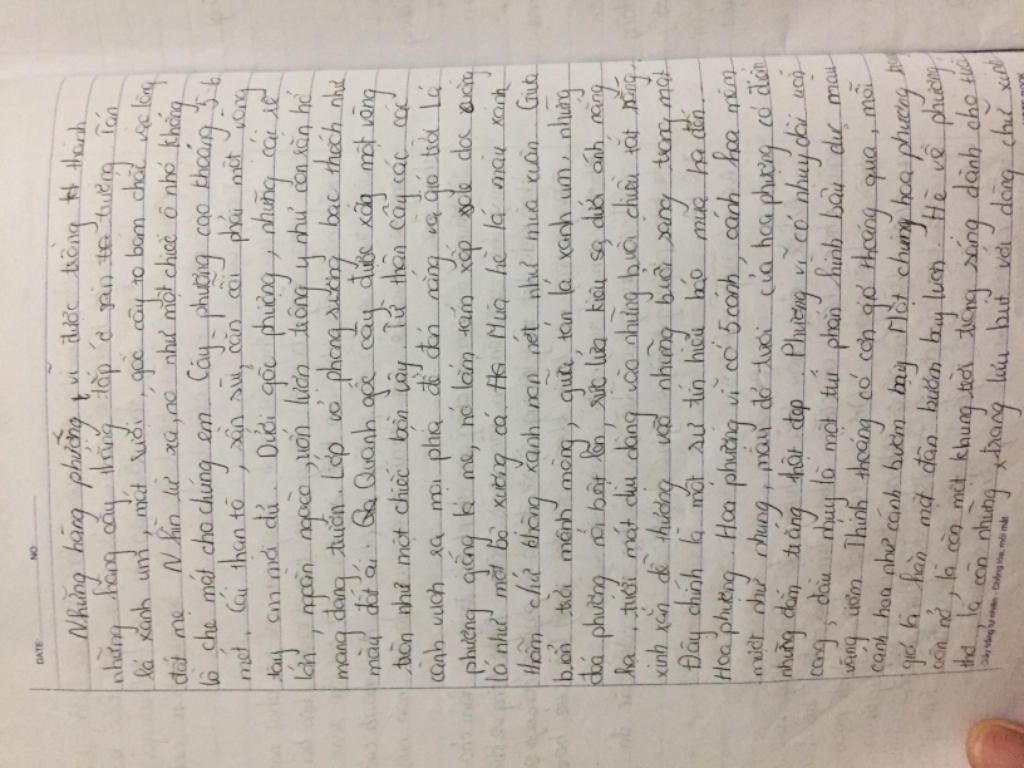 DATE NO
Những hàng phượng vĩ được trồng thành
những hàng cây thẳng tắp ở sân trường. Tán
lá xanh um, mát rượi, gốc cây to bám chặt vào lòng
đất mẹ. Nhìn từ xa, nó như một chiếc ô nhỏ khổng
lồ che mát cho chúng em. Cây phượng cao khoảng 5-6
mét. Cái thân to, sần sùi cần cãi phải một vòng
tay ôm mới đủ. Dưới gốc phượng, những cái rễ
lớn, ngoằn ngoèo, uốn lượn trông y như con rắn hổ
mang đang trườn. Lớp vỏ phong sương bạc thếch như
màu đất ải. Quanh gốc cây được xây một vòng
tròn như một chiếc bồn vậy. Từ thân cây các cái
cành vươn xa mọi phía để đón nắng và gió trời. Lá
phượng giống lá me, nó lấm tấm xếp dọc xương
lá như một bộ xương cá. Mùa hè lá màu xanh
thẫm chứ không xanh non nớt như mùa xuân. Giữa
bưởi trời mênh mông, giữa tán lá xanh um, những
đóa phượng nổi bật lên, rực lửa kiêu sa dưới ánh nắng
hạ, tươi mát dịu dàng vào những buổi chiều tắt nắng,
xinh xắn dễ thương với những buổi sáng trong mát.
Đây chính là một sự tín hiệu báo mùa hạ đến.
Hoa phượng. Hoa phượng vĩ có 5 cánh, cánh hoa mềm
mượt như nhung, màu đỏ tươi của hoa phượng có điểm
những đốm trắng thật đẹp. Phượng vĩ có nhuỵ dài uốn
cong, đầu nhuỵ là một túi phấn hình bầu dục màu
vàng ươm. Thỉnh thoảng có cơn gió thoảng qua, mỗi
cánh hoa như cánh bướm bay. Một chùm hoa phượng
giờ là hàn một đàn bướm bay lượn. Hè về phượng
còn nở, là còn một khung trời trong sáng dành cho tuổi
thơ, là còn những trang lưu bút với dòng chữ xinh